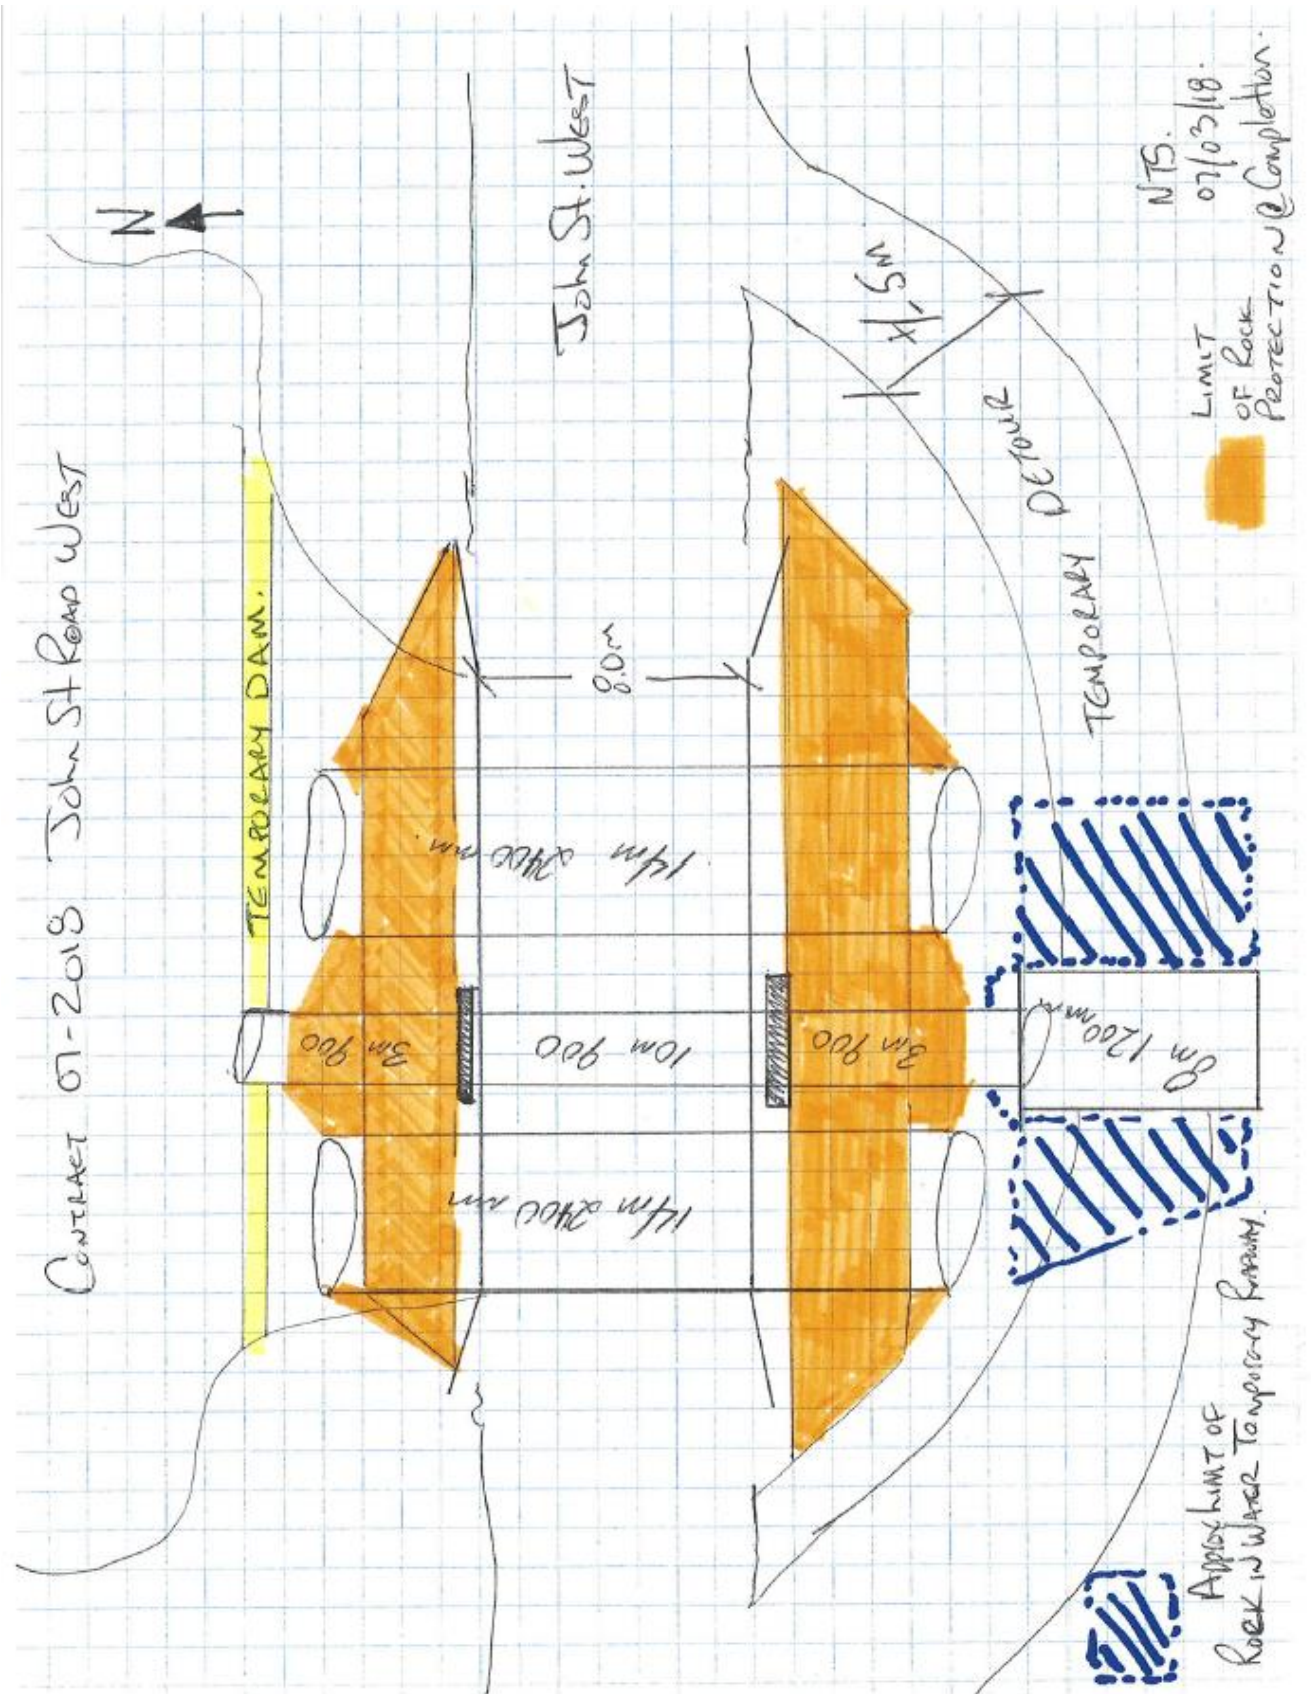 CONTRACT 07-2018 John St Road WEST
N
TEMPORARY DAM.
John St. West
8.0m
14m 2400 mm
3m 900
10m 900
3m 900
14m 2400 mm
8m 1200mm
TEMPORARY DETOUR
NTS.
07/03/18.
LIMIT
OF ROCK
PROTECTION @ Completion.
Approx LIMIT OF
ROCK IN WATER Temporary